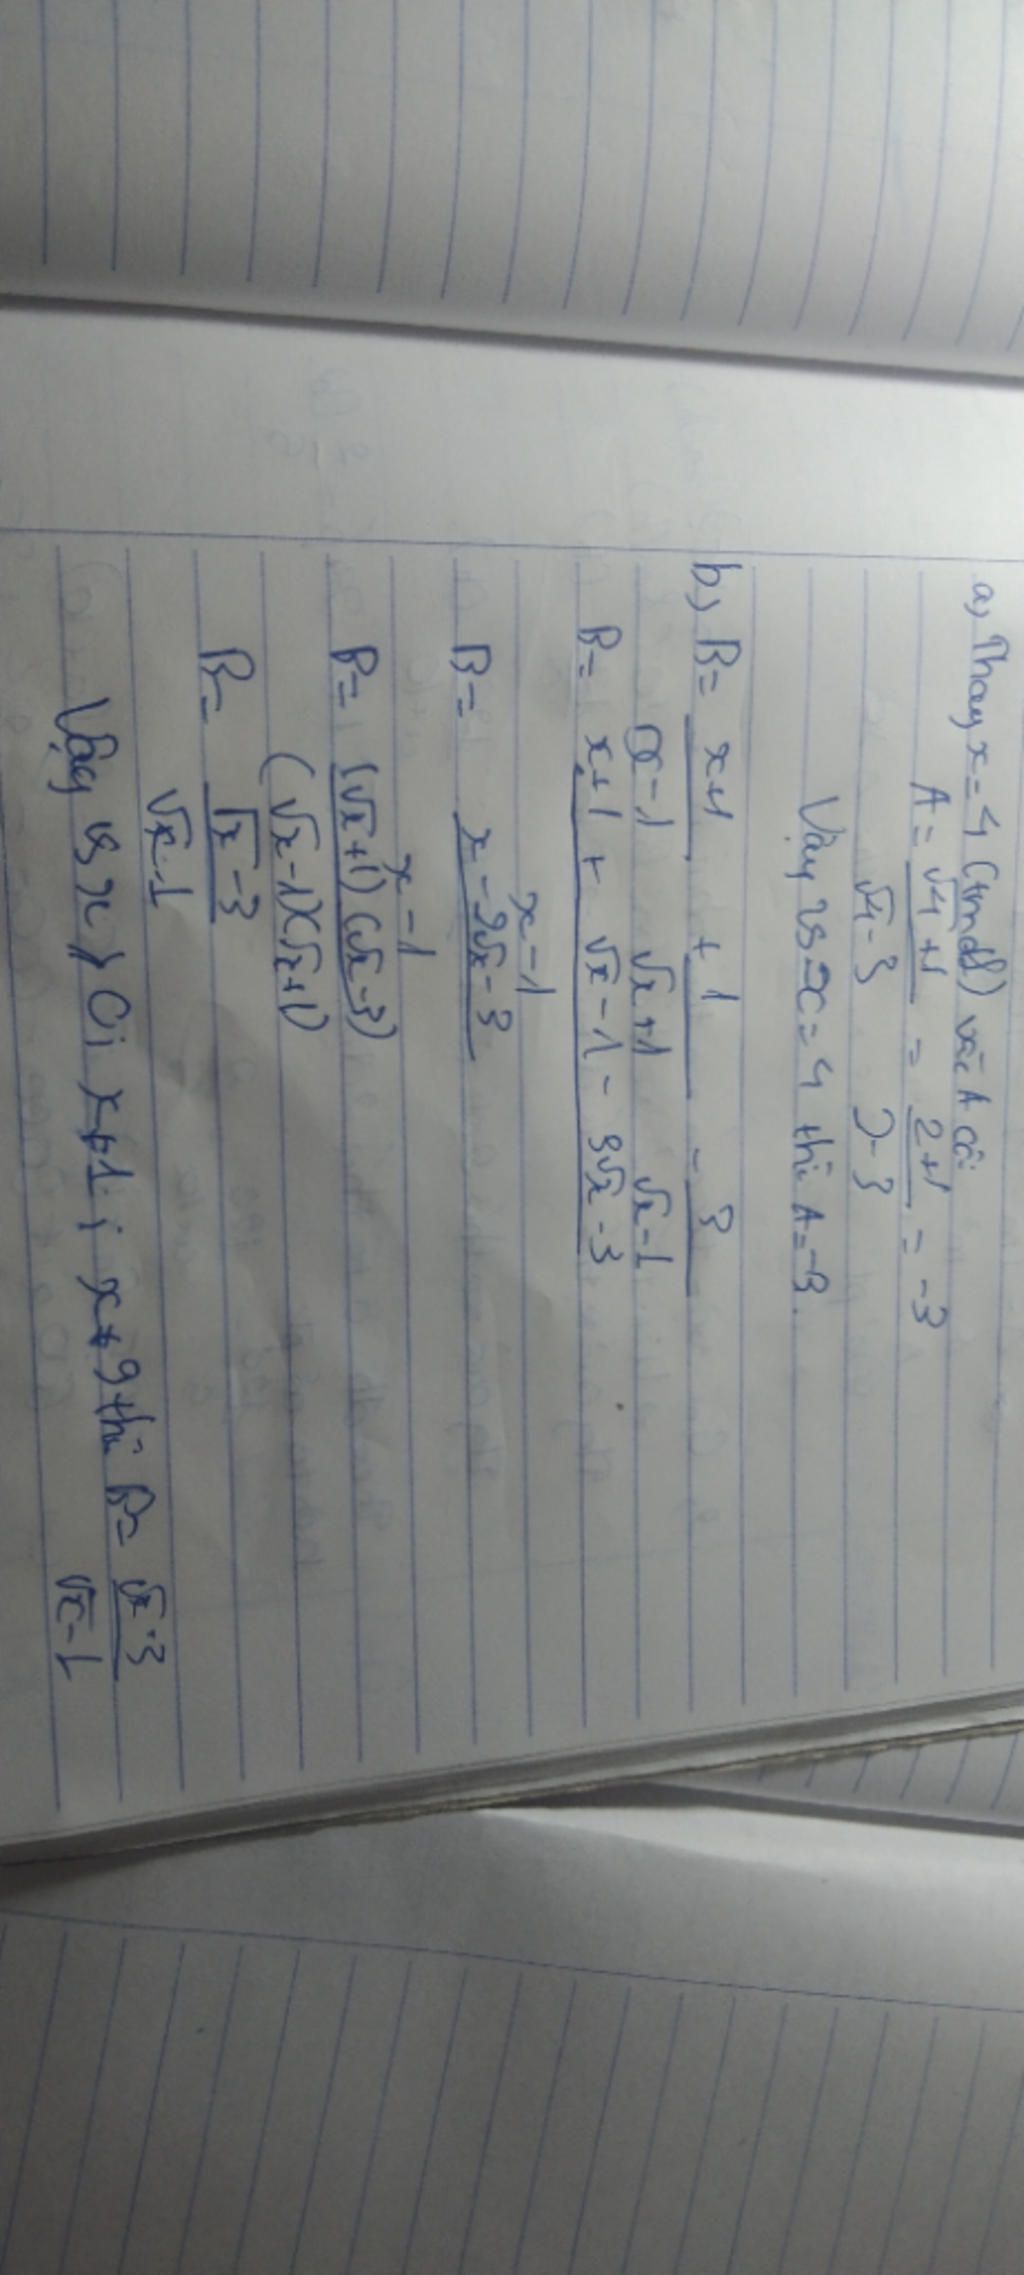 a, Thay x = 4 (tmđk) vào A có:
A = √4 + 1 / √4 - 3 = 2+1 / 2-3 = -3
Vậy vs x = 4 thì A = -3.
b, B = x+1 / x-1 + 1 / √x+1 - 3 / √x-1
B = x+1 + √x - 1 - 3√x - 3 / x-1
B = x - 2√x - 3 / x-1
B = (√x+1)(√x-3) / (√x-1)(√x+1)
B = √x-3 / √x-1
Vậy vs x > 0; x≠1; x≠9 thì B = √x-3 / √x-1